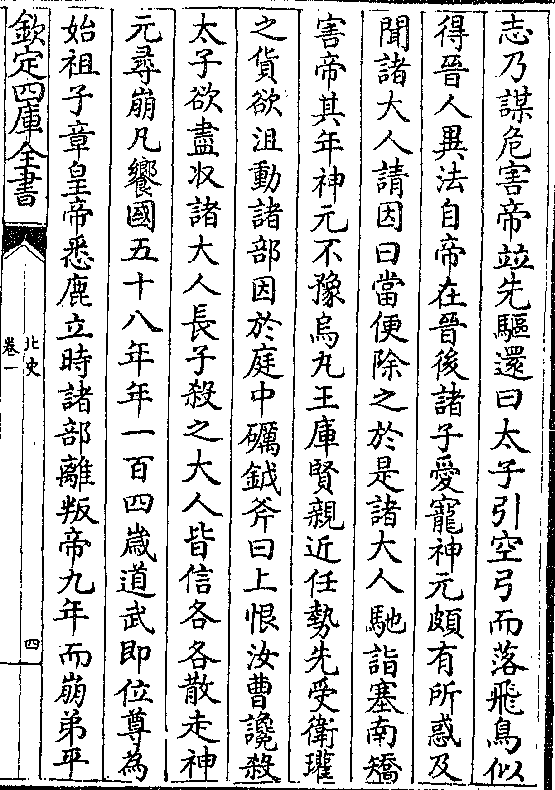 志乃謀危害帝並先驅還曰太子引空弓而落飛鳥似
得晉人異法自帝在晉後諸子愛寵神元頗有所惑及
聞諸大人請因曰當便除之於是諸大人馳詣塞南矯
害帝其年神元不豫烏九王庫賢親近任勢先受衛瓘
之貨欲沮動諸部因於庭中礪鉞斧曰上恨汝曹讒殺
太子欲盡收諸大人長子殺之大人皆信各各散走神
元尋崩凡饗國五十八年年一百四歲道武即位尊為
始祖子章皇帝悉鹿立時諸部離叛帝九年而崩弟平
欽定四庫全書
北史
卷一
四